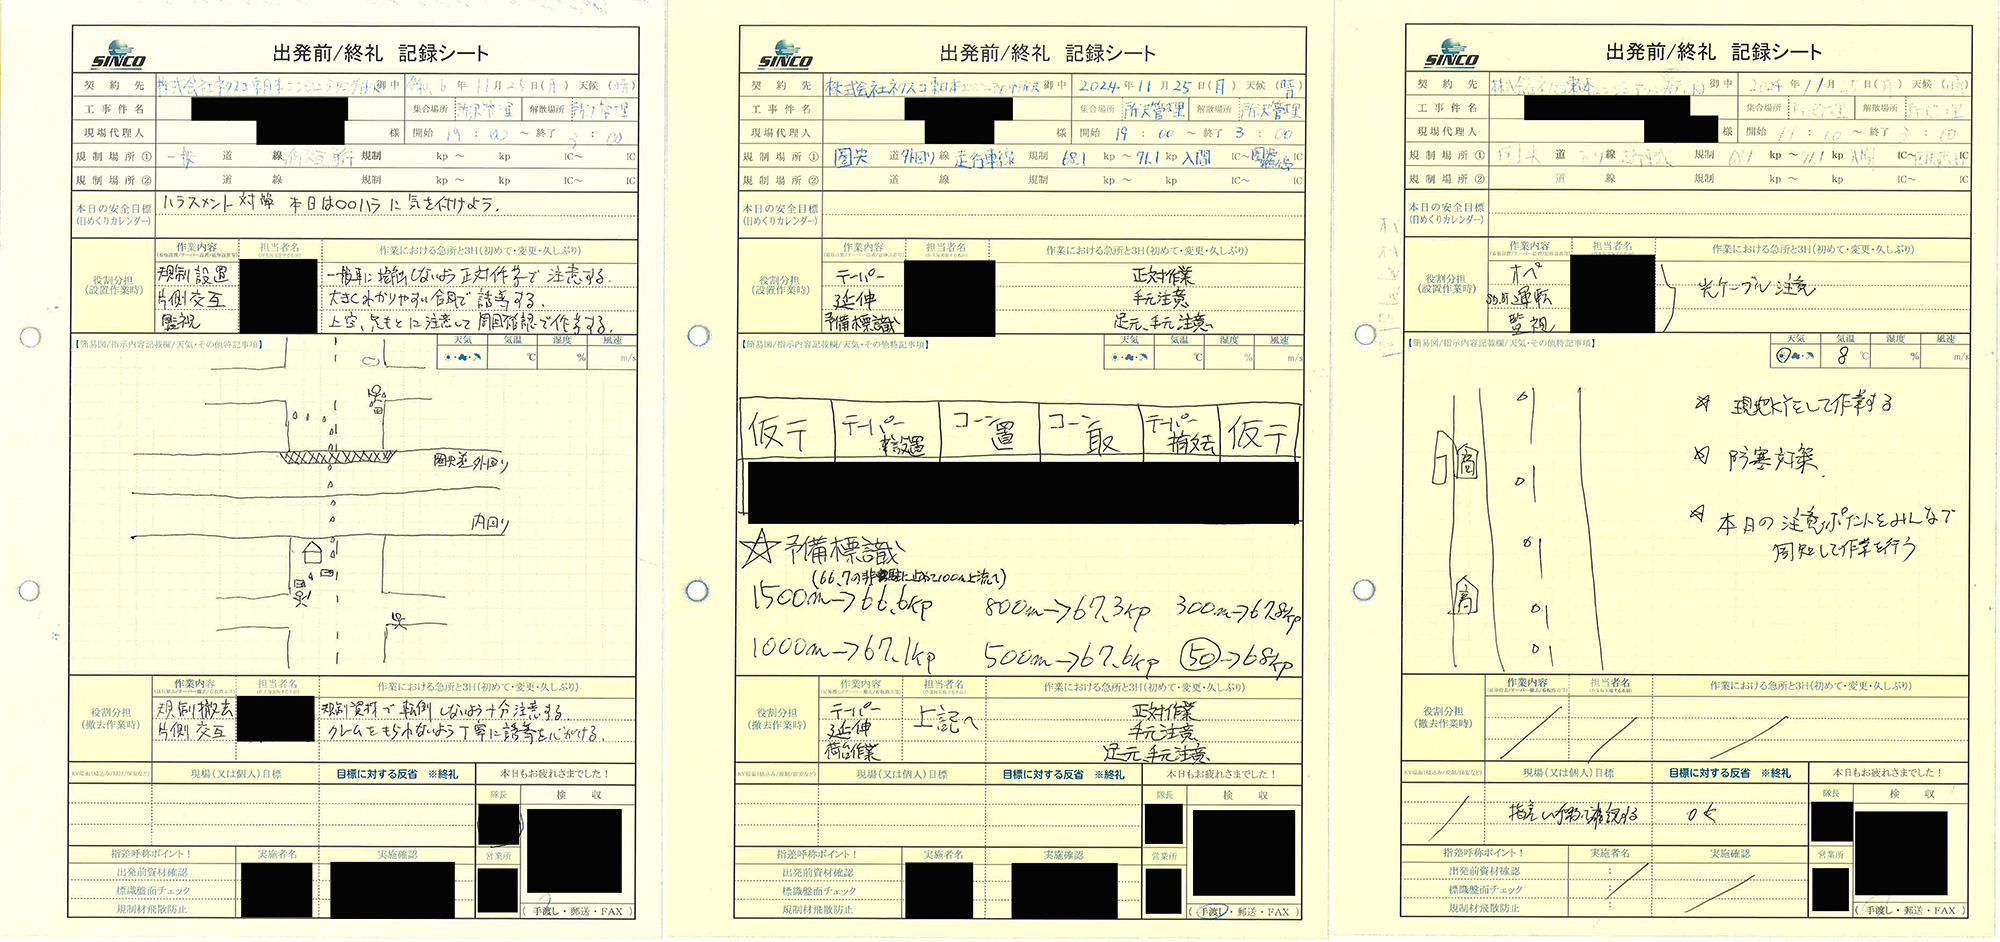 SINCO
出発前/終礼 記録シート
契約先 株式会社ネクスコ東日本エンジニアリング 御中 6年11月25日(月) 天候(晴)
工事件名 集合場所 所沢管理 解散場所 所沢管理
現場代理人 様 開始 19:00~終了 3:00
規制場所① 一般 道 線 規制 kp~ kp IC~ IC
規制場所② 道 線 規制 kp~ kp IC~ IC
本日の安全目標(日めくりカレンダー) ハラスメント対策 本日は〇〇ハラに気を付けよう.
役割分担(設置作業時)
作業内容 担当者名 作業における急所と3H(初めて・変更・久しぶり)
規制設置 一般車に接触しないよう正対作業で注意する.
片側交互 大きくわかりやすい合図で誘導する.
監視 上空、足もとに注意して周囲確認で作業する.
【簡易図/指示内容記載欄/天気・その他特記事項】
天気 気温 湿度 風速
℃ % m/s
圏央道外回り
内回り
役割分担(撤去作業時)
作業内容 担当者名 作業における急所と3H(初めて・変更・久しぶり)
規制撤去 規制資材で転倒しないよう十分注意する.
片側交互 クレームをもられないよう丁寧に誘導を心がける.
現場(又は個人)目標 目標に対する反省 ※終礼 本日もお疲れさまでした!
隊長 検収
指差呼称ポイント! 実施者名 実施確認 営業所
出発前資材確認
標識盤面チェック
規制材飛散防止
(手渡し・郵送・FAX)
SINCO
出発前/終礼 記録シート
契約先 株式会社ネクスコ東日本エンジニアリング所沢 御中 2024年11月25日(月) 天候(晴)
工事件名 集合場所 所沢管理 解散場所 所沢管理
現場代理人 様 開始 19:00~終了 3:00
規制場所① 圏央 道 外回り 線 走行車線 規制 68.1 kp~ 71.1 kp 入間 IC~ IC
規制場所② 道 線 規制 kp~ kp IC~ IC
本日の安全目標(日めくりカレンダー)
役割分担(設置作業時)
作業内容 担当者名 作業における急所と3H(初めて・変更・久しぶり)
テーパー 正対作業
延伸 手元注意
予備標識 足元、手元注意
【簡易図/指示内容記載欄/天気・その他特記事項】
天気 気温 湿度 風速
℃ % m/s
仮テ テーパー設置 コーン置 コーン取 テーパー撤去 仮テ
☆予備標識
1500m→66.6kp 800m→67.3kp 300m→67.8kp
1000m→67.1kp 500m→67.6kp 50→68kp
役割分担(撤去作業時)
作業内容 担当者名 作業における急所と3H(初めて・変更・久しぶり)
テーパー 上記へ 正対作業
延伸 手元注意
荷台作業 足元、手元注意
現場(又は個人)目標 目標に対する反省 ※終礼 本日もお疲れさまでした!
隊長 検収
指差呼称ポイント! 実施者名 実施確認 営業所
出発前資材確認
標識盤面チェック
規制材飛散防止
(手渡し・郵送・FAX)
SINCO
出発前/終礼 記録シート
契約先 御中 2024年11月25日(月) 天候(晴)
工事件名 集合場所 解散場所
現場代理人 様 開始 19:00~終了 3:00
規制場所① 道 線 規制 68.1 kp~ 71.1 kp IC~ IC
規制場所② 道 線 規制 kp~ kp IC~ IC
本日の安全目標(日めくりカレンダー)
役割分担(設置作業時)
作業内容 担当者名 作業における急所と3H(初めて・変更・久しぶり)
オペ
運転 光ケーブル注意
監視
【簡易図/指示内容記載欄/天気・その他特記事項】
天気 気温 湿度 風速
8℃ % m/s
☆ 現地KYをして作業する
☆ 防寒対策.
☆ 本日の注意ポイントをみんなで
周知して作業を行う
役割分担(撤去作業時)
作業内容 担当者名 作業における急所と3H(初めて・変更・久しぶり)
現場(又は個人)目標 目標に対する反省 ※終礼 本日もお疲れさまでした!
OK
隊長 検収
指差呼称ポイント! 実施者名 実施確認 営業所
出発前資材確認
標識盤面チェック
規制材飛散防止
(手渡し・郵送・FAX)